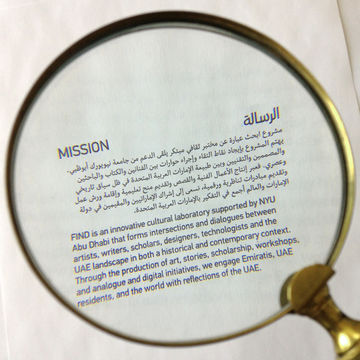 MISSION
الرسالة
مشروع ابحث عبارة عن مختبر ثقافي مبتكر يلقى الدعم من جامعة نيويورك أبوظبي.
يهتم المشروع بإيجاد نقاط التقاء وإجراء حوارات بين الفنانين والكتاب والباحثين
والمصممين والتقنيين وبين طبيعة الإمارات العربية المتحدة في ظل سياق تاريخي
وعصري. فعبر إنتاج الأعمال الفنية والقصص وتقديم منح تعليمية وإقامة ورش عمل
وتقديم مبادرات تناظرية ورقمية، نسعى إلى إشراك الإماراتيين والمقيمين في دولة
الإمارات والعالم أجمع في التفكير بالإمارات العربية المتحدة.
FIND is an innovative cultural laboratory supported by NYU
Abu Dhabi that forms intersections and dialogues between
artists, writers, scholars, designers, technologists and the
UAE landscape in both a historical and contemporary context.
Through the production of art, stories, scholarship, workshops,
and analogue and digital initiatives, we engage Emiratis, UAE
residents, and the world with reflections of the UAE.